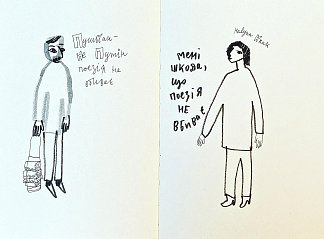 Пушкін –
це Путін
поезія не
вбиває
мені
шкода,
що
поезія
не
вбиває